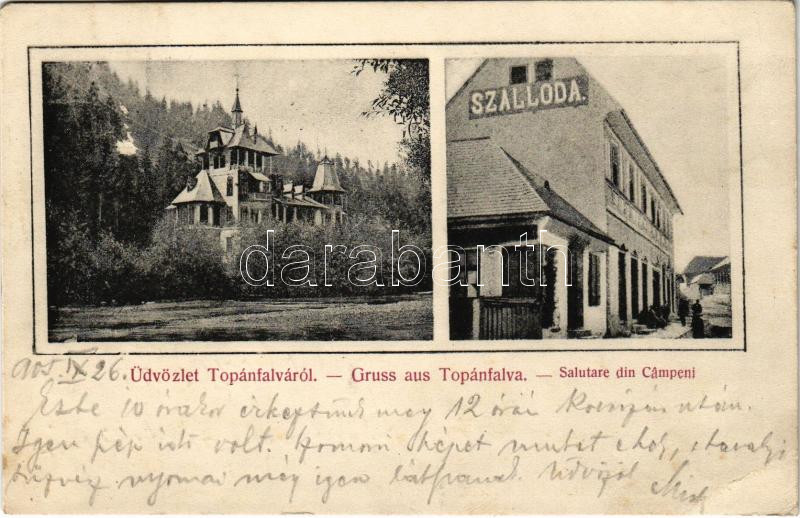 SZÁLLODA.
darabanth
905 IX 26.
Üdvözlet Topánfalváról. — Gruss aus Topánfalva. — Salutare din Câmpeni
Este 10 órakor érkeztünk meg 12 órai kocsizás után.
Igen szép idő volt. Szomorú képet mutat a hely, a tavalyi
tűzvész nyomai még igen látszanak. Üdvözöl